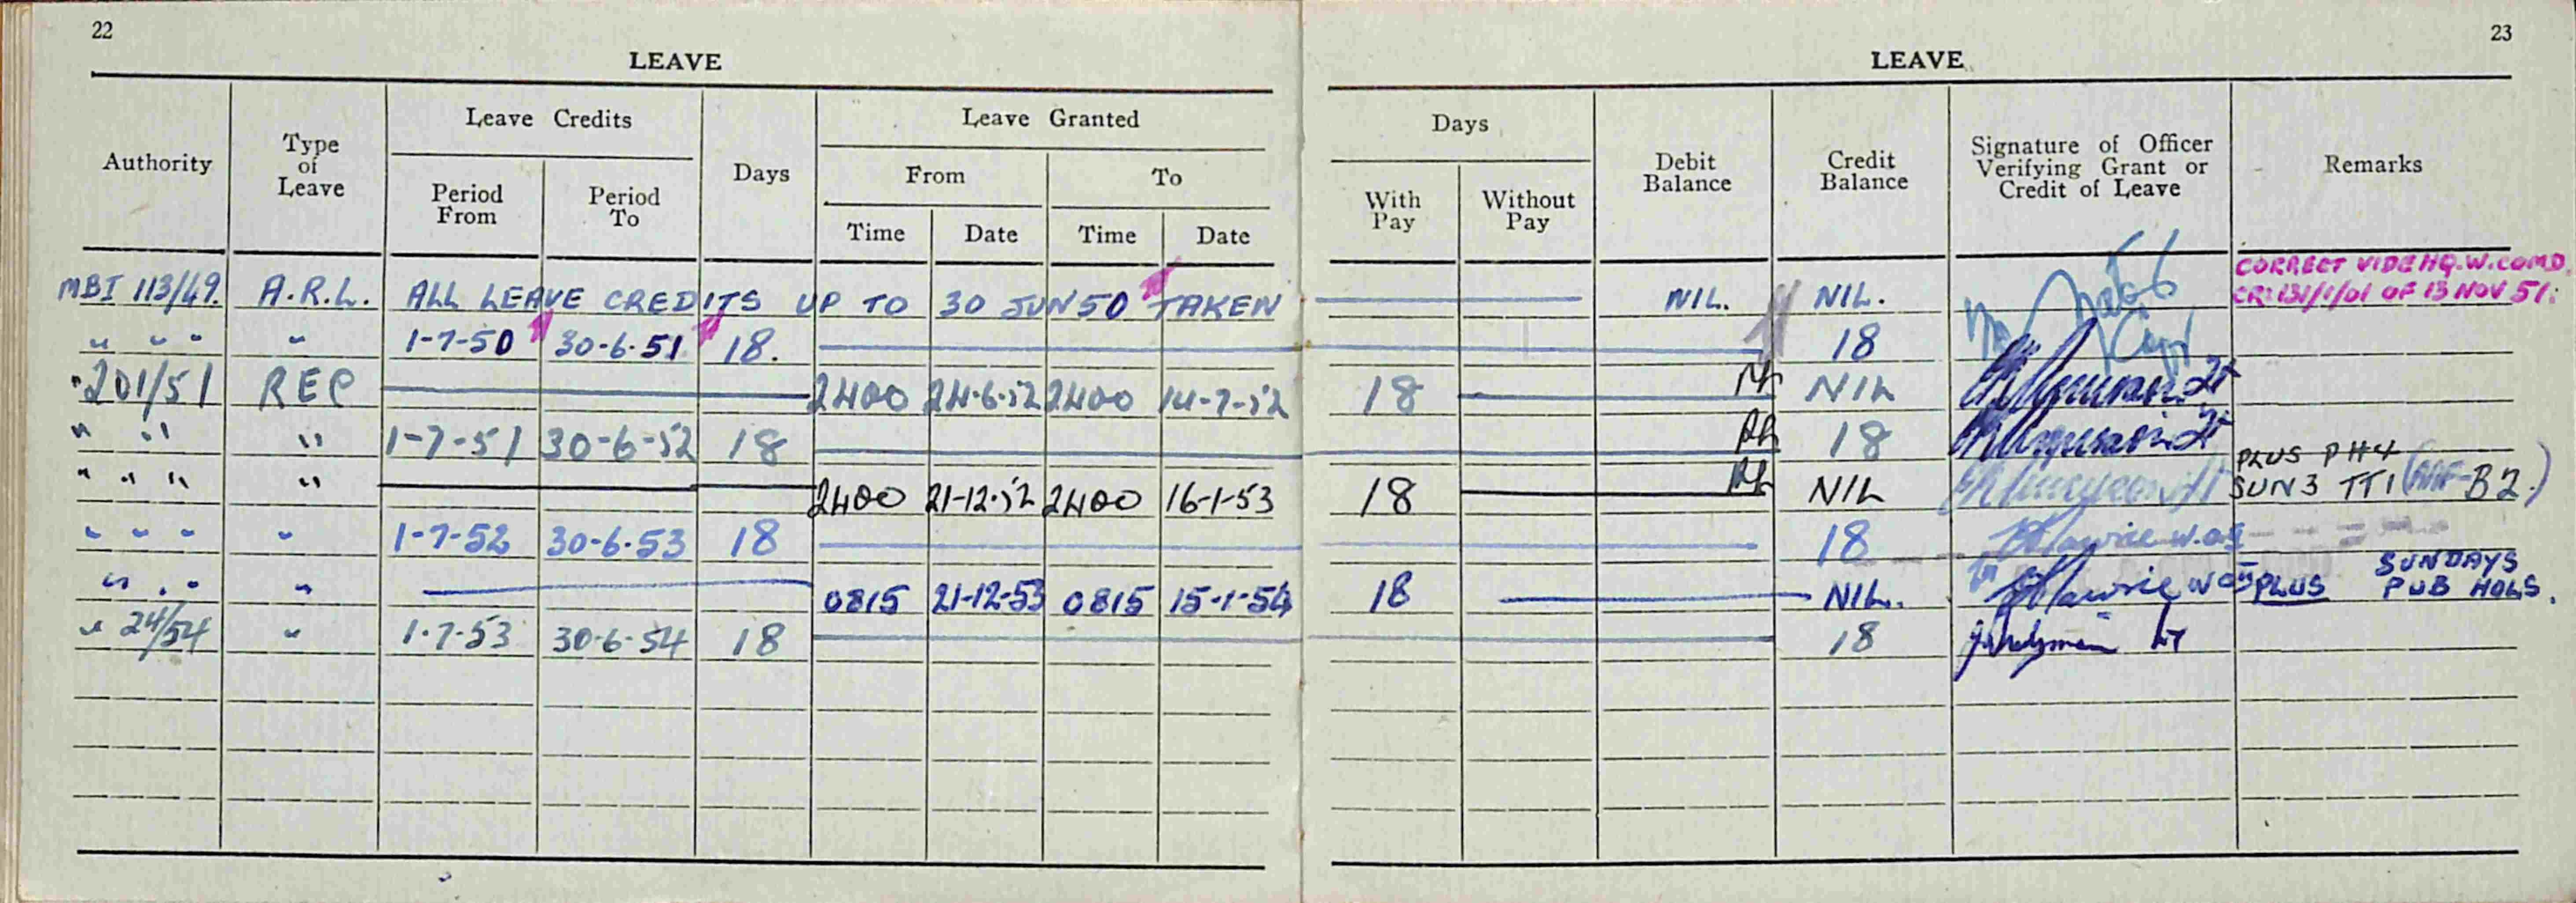 22
LEAVE
Authority
Type of Leave
Leave Credits
Period From
Period To
Days
Leave Granted
From
To
Time
Date
Time
Date
MBI 113/49. A.R.L. ALL LEAVE CREDITS UP TO 30 JUN 50 TAKEN
" " " " 1-7-50 30-6-51 18.
" 201/51 REC 2400 24-6-52 2400 14-7-52
" " " 1-7-51 30-6-52 18
" " " " 2400 21-12-52 2400 16-1-53
" " " " 1-7-52 30-6-53 18
" " " " 0815 21-12-53 0815 15-1-54
" 24/54 " 1-7-53 30-6-54 18
23
LEAVE
Days
With Pay
Without Pay
Debit Balance
Credit Balance
Signature of Officer Verifying Grant or Credit of Leave
Remarks
NIL. NIL. CORRECT VIDE HQ.W.COMD.
CR131/1/01 OF 13 NOV 51.
18 Capt
18 NIL Lt
18 Lt
PLUS PH4
18 NIL SUN 3 TT1 (AAF-B2.)
18
SUNDAYS
18 NIL. PLUS PUB HOLS.
18 Lt